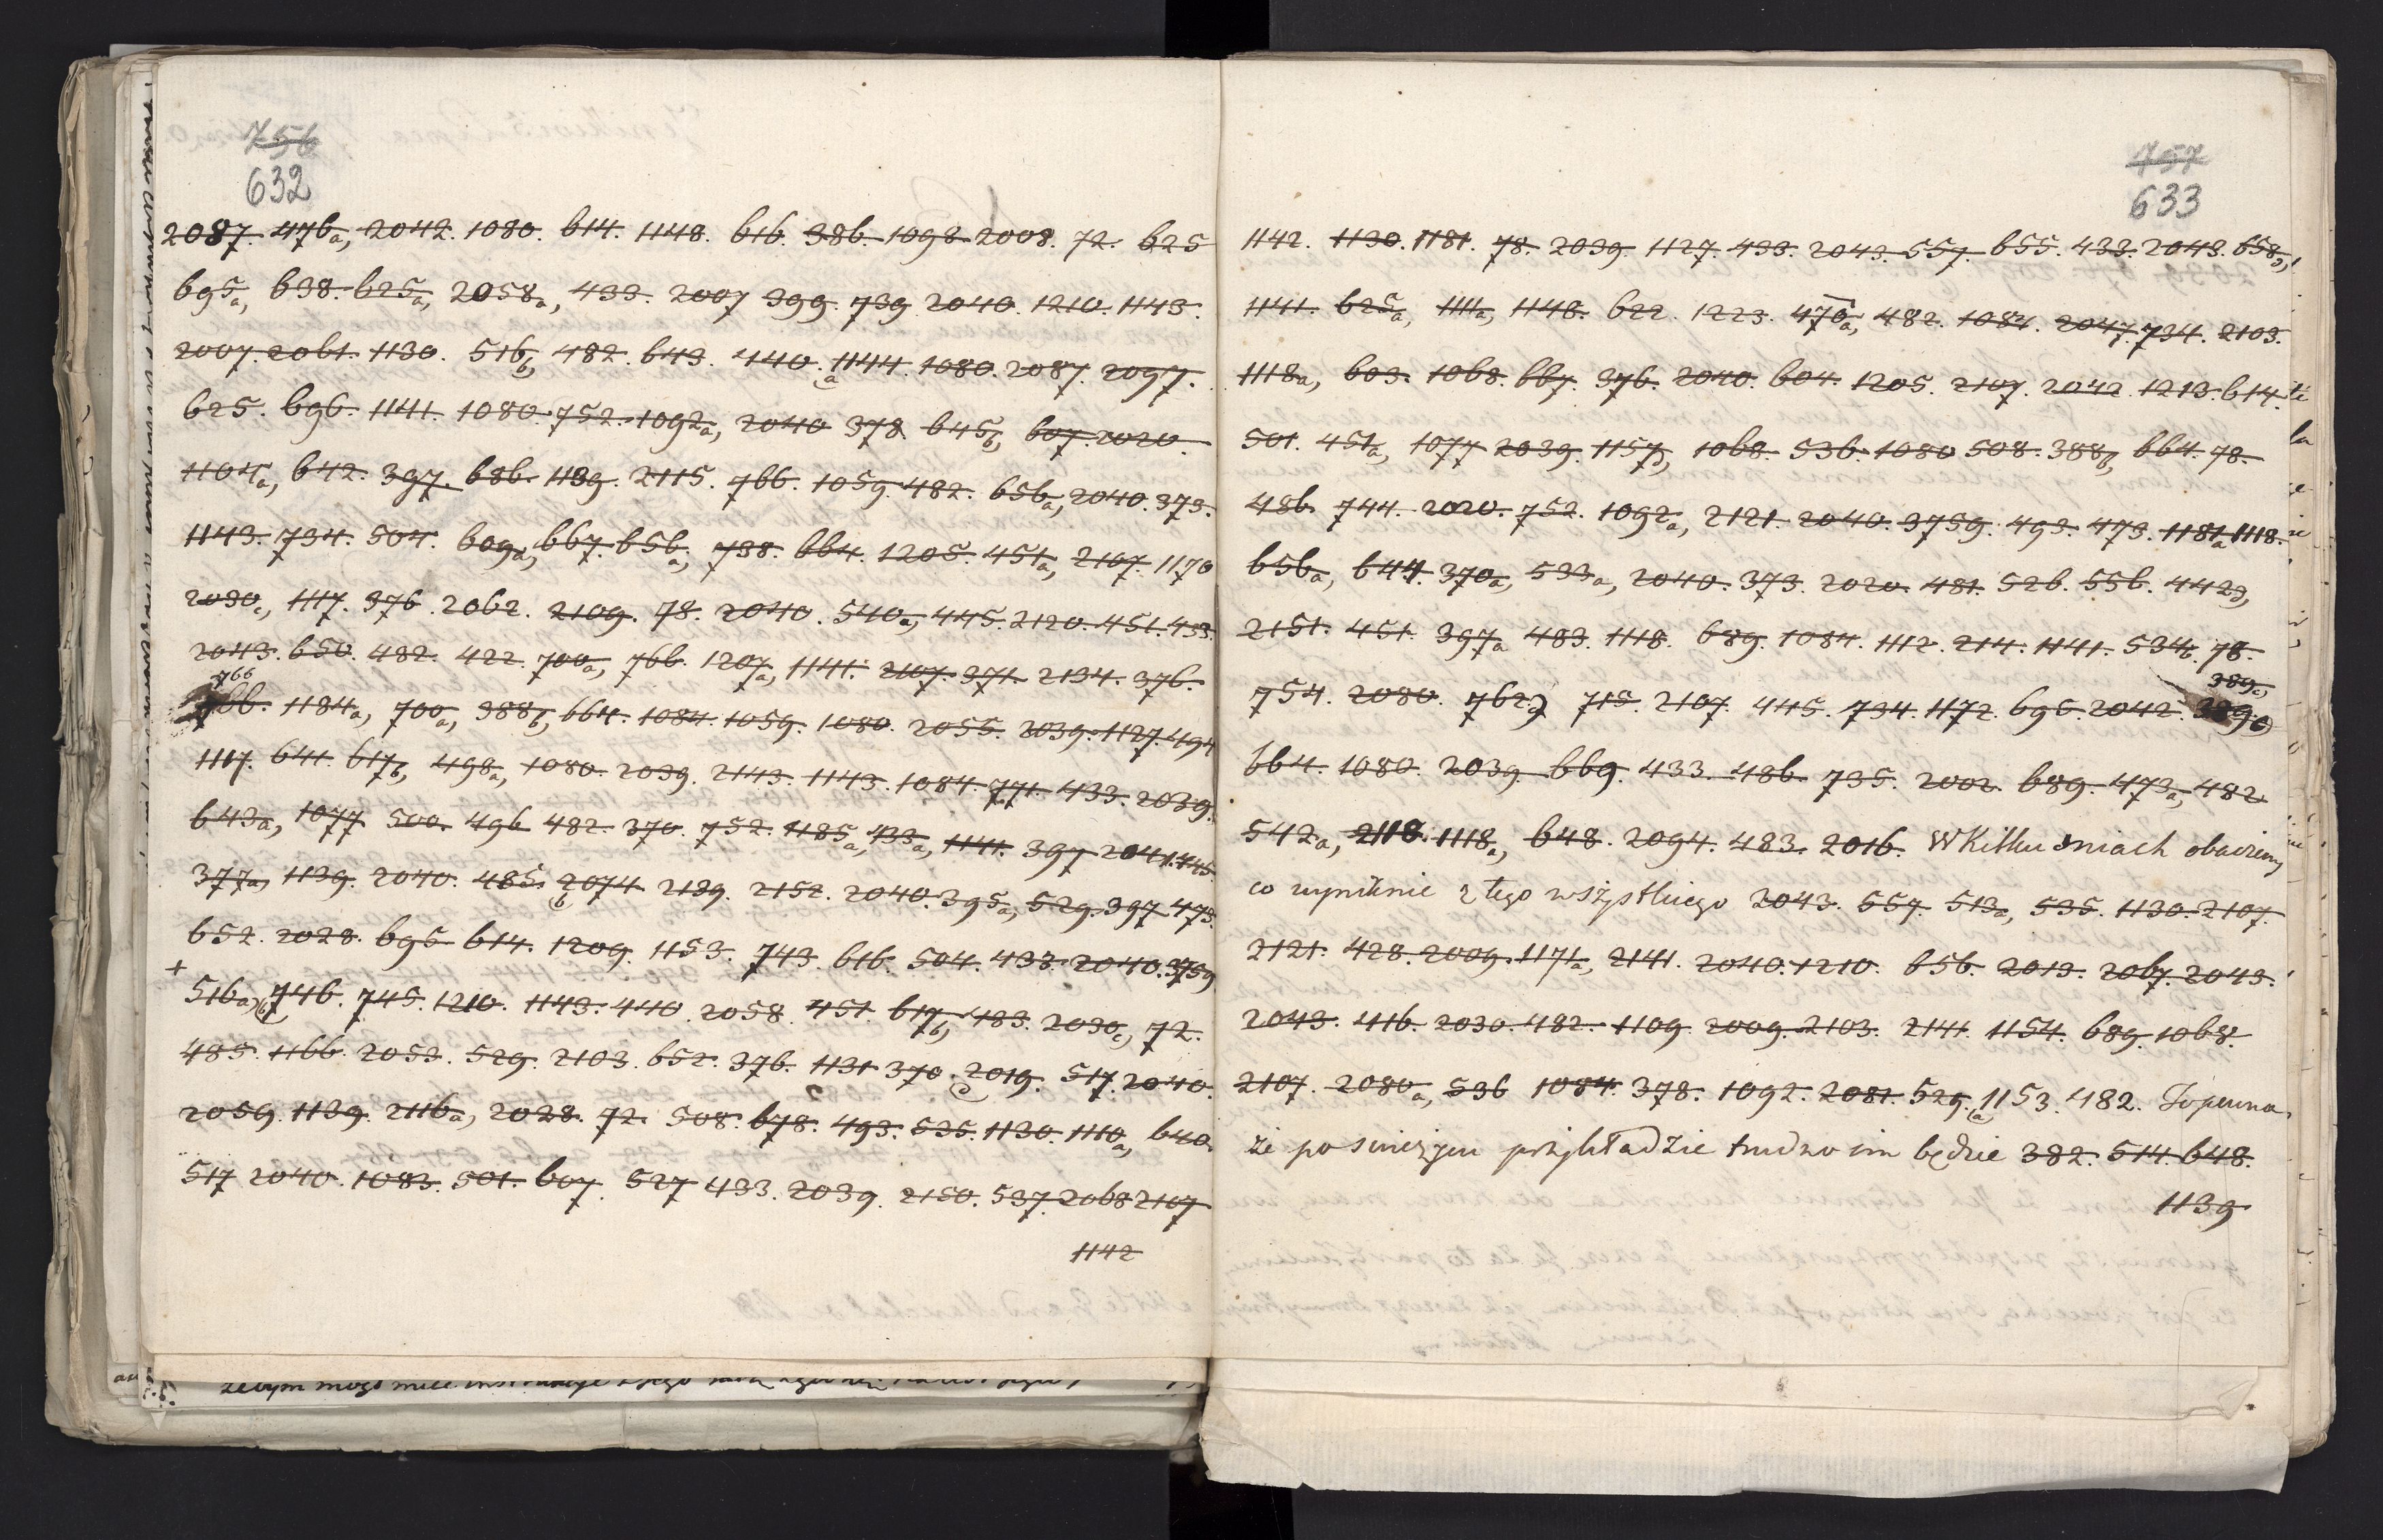 756
632
2087. 476a, 2042. 1080. 614. 1148. 616. 386. 1098. 2008. 72. 625
695a, 638. 625a, 2058a, 433. 2007 399. 739 2040. 1210. 1143.
2007. 2061. 1130. 516b, 482. 643. 440.a 1144. 1080. 2087. 2097.
625. 696. 1141. 1080. 752. 1092a, 2040 378. 645b, 607. 2020.
1104a, 642. 397. 686. 1189. 2115. 766. 1059. 482. 656a, 2040. 373.
1143. 734. 504. 609a, 667. 656a, 738. 664. 1205. 451a, 2107. 1170
2030c, 1117. 376. 2062. 2109. 78. 2040. 540a, 445. 2120. 451. 433.
2043. 650. 482. 422. 700a, 766. 1207a, 1141. 2107. 371. 2134. 376.
766
766. 1184a, 700a, 388b, 664. 1084. 1059. 1080. 2055. 2039. 1127. 494
1117. 641. 617b, 498a, 1080. 2039. 2143. 1143. 1084. 771. 433. 2039.
643a, 1077. 500. 496 482. 370. 752. 1185a, 433a, 1141. 397 2041. 445.
377a, 1139. 2040. 485.b 2074 2139. 2152. 2040. 395a, 529. 397 473.
652. 2028. 695 614. 1209. 1153. 743. 616. 504. 433. 2040. 3759
+
516a, 746. 745. 1210. 1143. 440. 2058. 451. 617b, 483. 2030c, 72.
485. 1166. 2052. 529. 2103. 652. 376. 1131 370. 2019. 517. 2040.
2059. 1139. 2116a, 2028. 72. 508. 678. 493. 535. 1130. 1110a, 640.
517 2040. 1083. 501. 607. 527 433. 2039. 2150. 537. 2068 2107
1142
757
633
1142. 1130. 1181. 78. 2039. 1127. 433. 2043. 557. 655. 433. 2043. 658
1141. 625a, 1111a, 1148. 622. 1223. 470a, 482. 1084. 2047. 734. 2103.
1118a, 603. 1068. 667. 376. 2040. 604. 1205. 2107. 2042. 1213. 614.
501. 451a, 1077 2039. 1157 1068. 536. 1080 508. 388b, 664. 78.
486. 744. 2020. 752. 1092a, 2121. 2040. 3759. 493. 473. 1181a 1118.
656a, 644. 370a, 533a, 2040. 373. 2020. 481. 526. 556. 442
2151. 451. 397a 483. 1118. 689. 1084. 1112. 214. 1141. 534b. 78.
389c,
754. 2080. 762 715. 2107. 445. 734. 1172. 696. 2042.
664. 1080. 2039. 669. 433. 486. 735. 2002. 689. 473a, 482
542a, 2118. 1118a, 648. 2094. 483. 2016. W Kilku dniach obaczemy
co wyniknie z tego wszystkiego 2043. 557. 513a, 535. 1130. 2107.
2121. 428. 2009. 1171a, 2141. 2040. 1210. 656. 2013. 2067. 2043.
2043. 416. 2030. 482. 1109. 2009. 2103. 2141. 1154. 689. 1068.
2107. 2080a, 536 1084. 378. 1092. 2081. 529.a 1153. 482. To pewna
że po swieżym przykładzie trudno im będzie 382. 514. 648.
1139